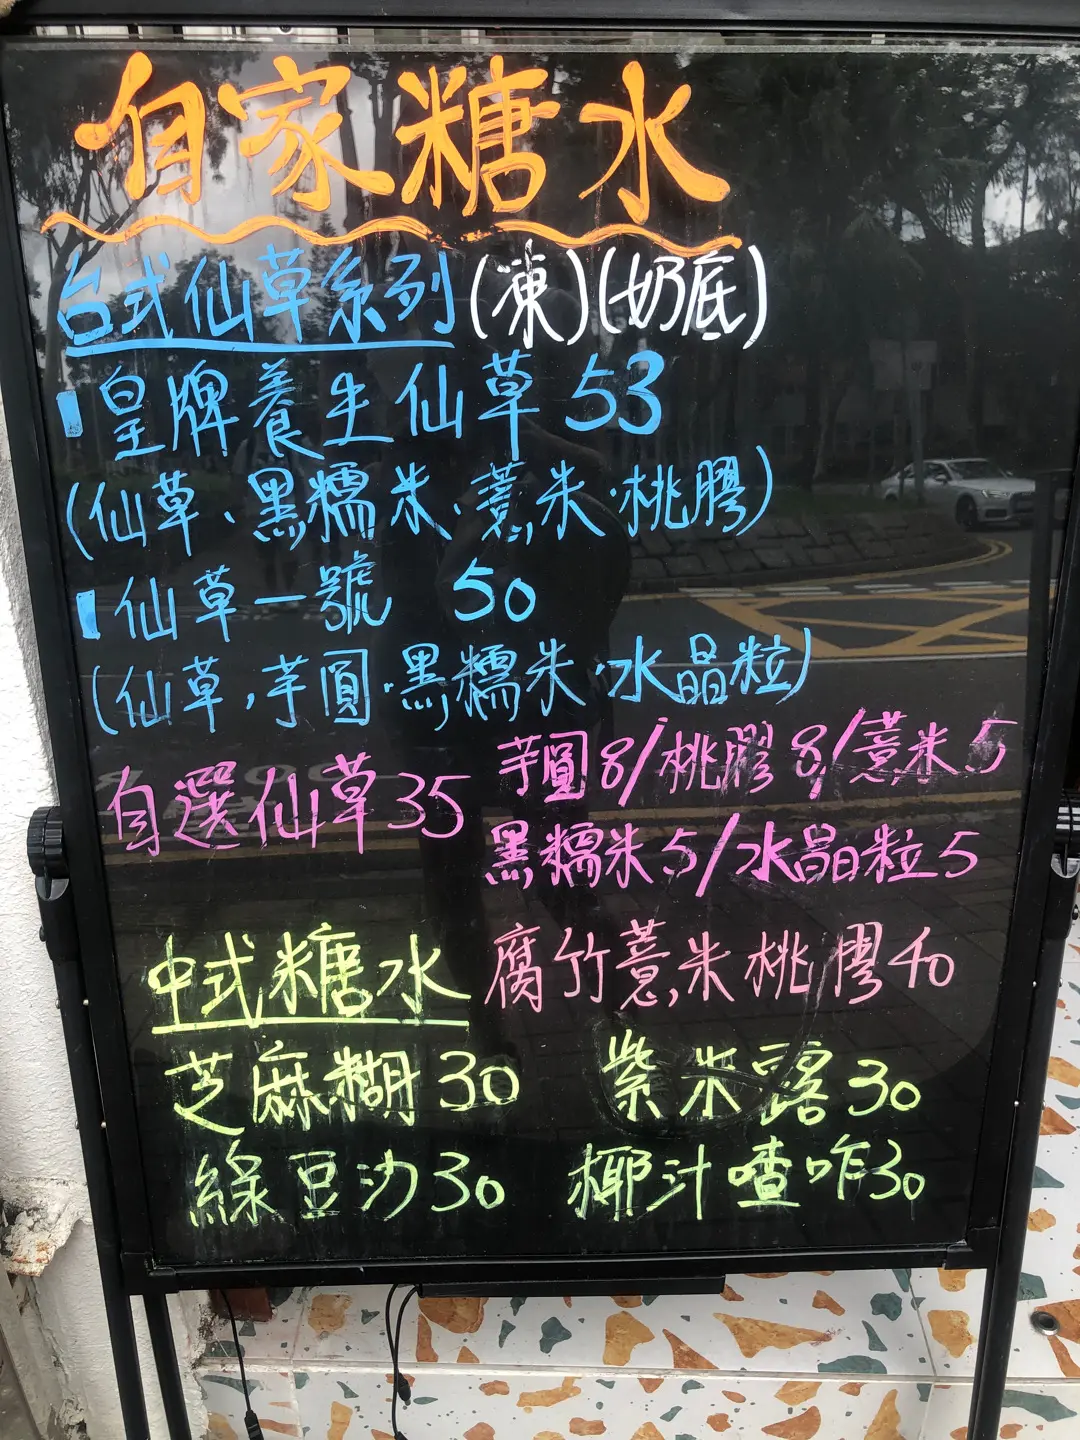 自家糖水
台式仙草系列(凍)(奶底)
皇牌養生仙草 53
(仙草、黑糯米·薏米·桃膠)
仙草一號 50
(仙草,芋圓·黑糯米·水晶粒)
自選仙草35
芋圓8/桃膠8/薏米5
黑糯米5/水晶粒5
中式糖水
腐竹薏米桃膠40
芝麻糊30 紫米露30
綠豆沙30 椰汁喳咋30